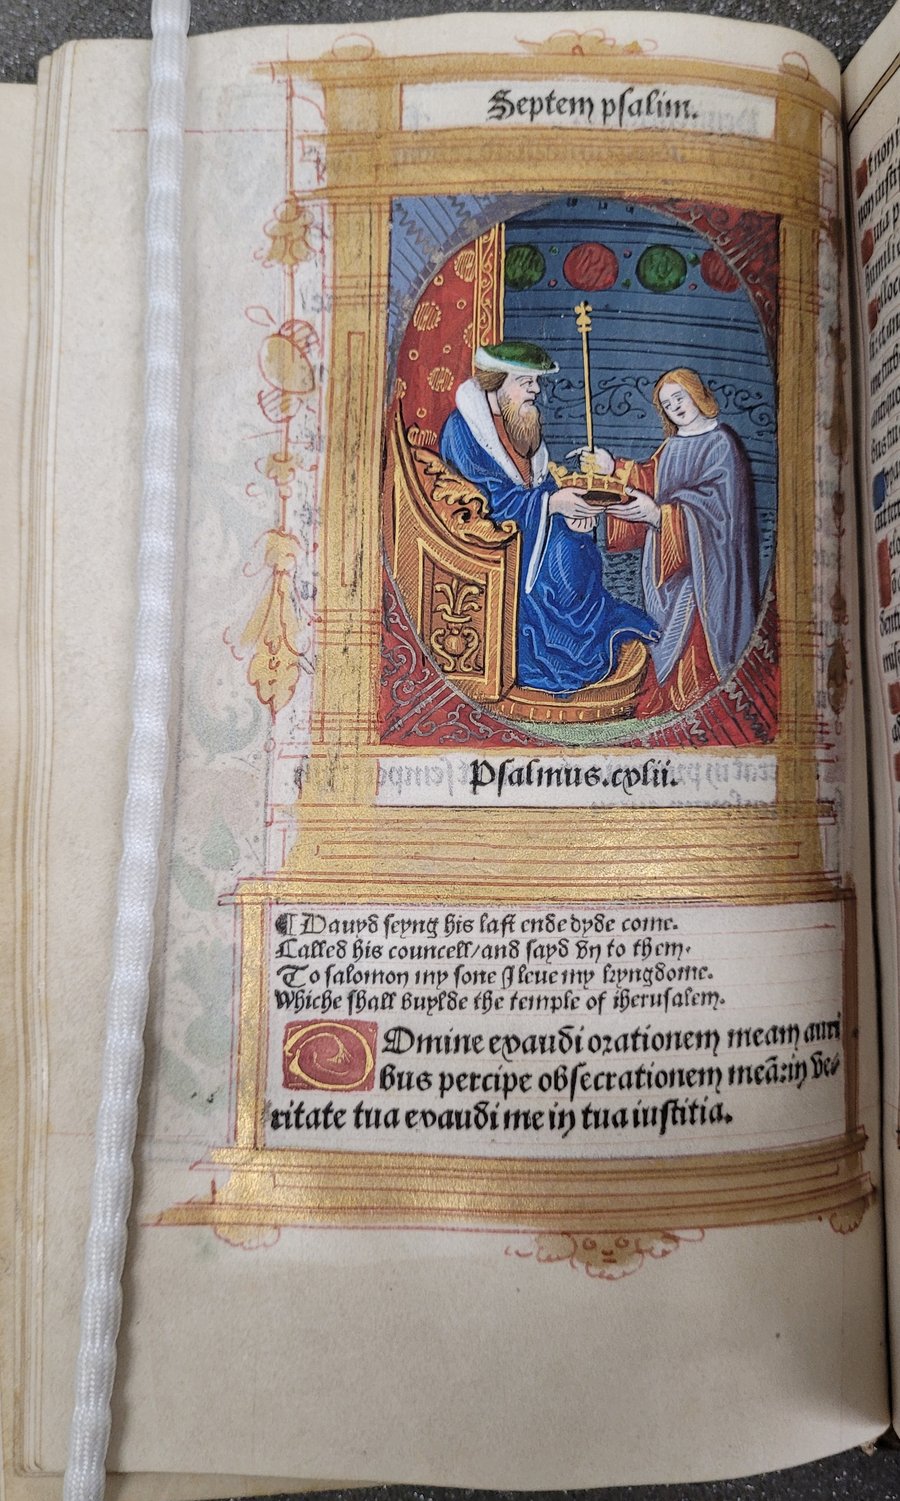 Septem psalim.
Psalmus.cxlii.
¶ Dauyd seyng his last ende dyde come.
Called his councell/and sayd vn to them.
To salomon my sone I leue my kyngdome.
Whiche shall buylde the temple of iherusalem.
DOmine exaudi orationem meam auri
bus percipe obsecrationem meã:in ve⸗
ritate tua exaudi me in tua iustitia.